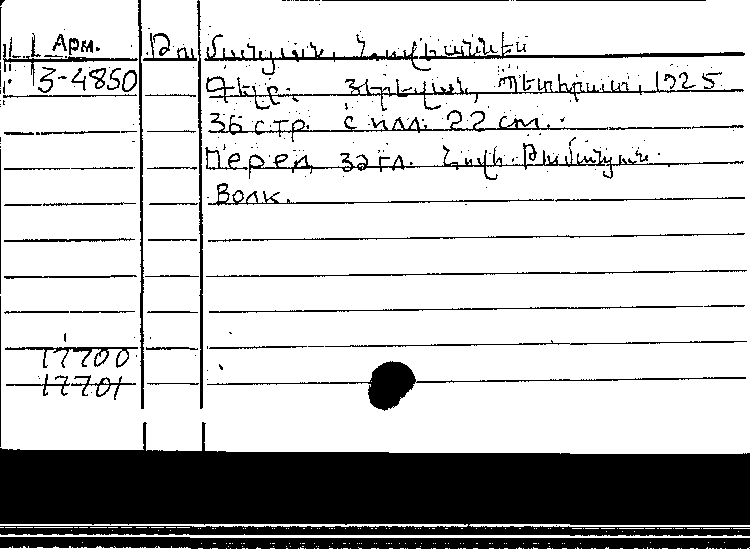 Арм. Թումանյան, Հովհաննես
3-4850 Գելը. Յերևան, Պետհրատ, 1925
36 стр. с илл. 22 см.
Перед загл. Հովհ. Թումանյան.
Волк.
17700
17701